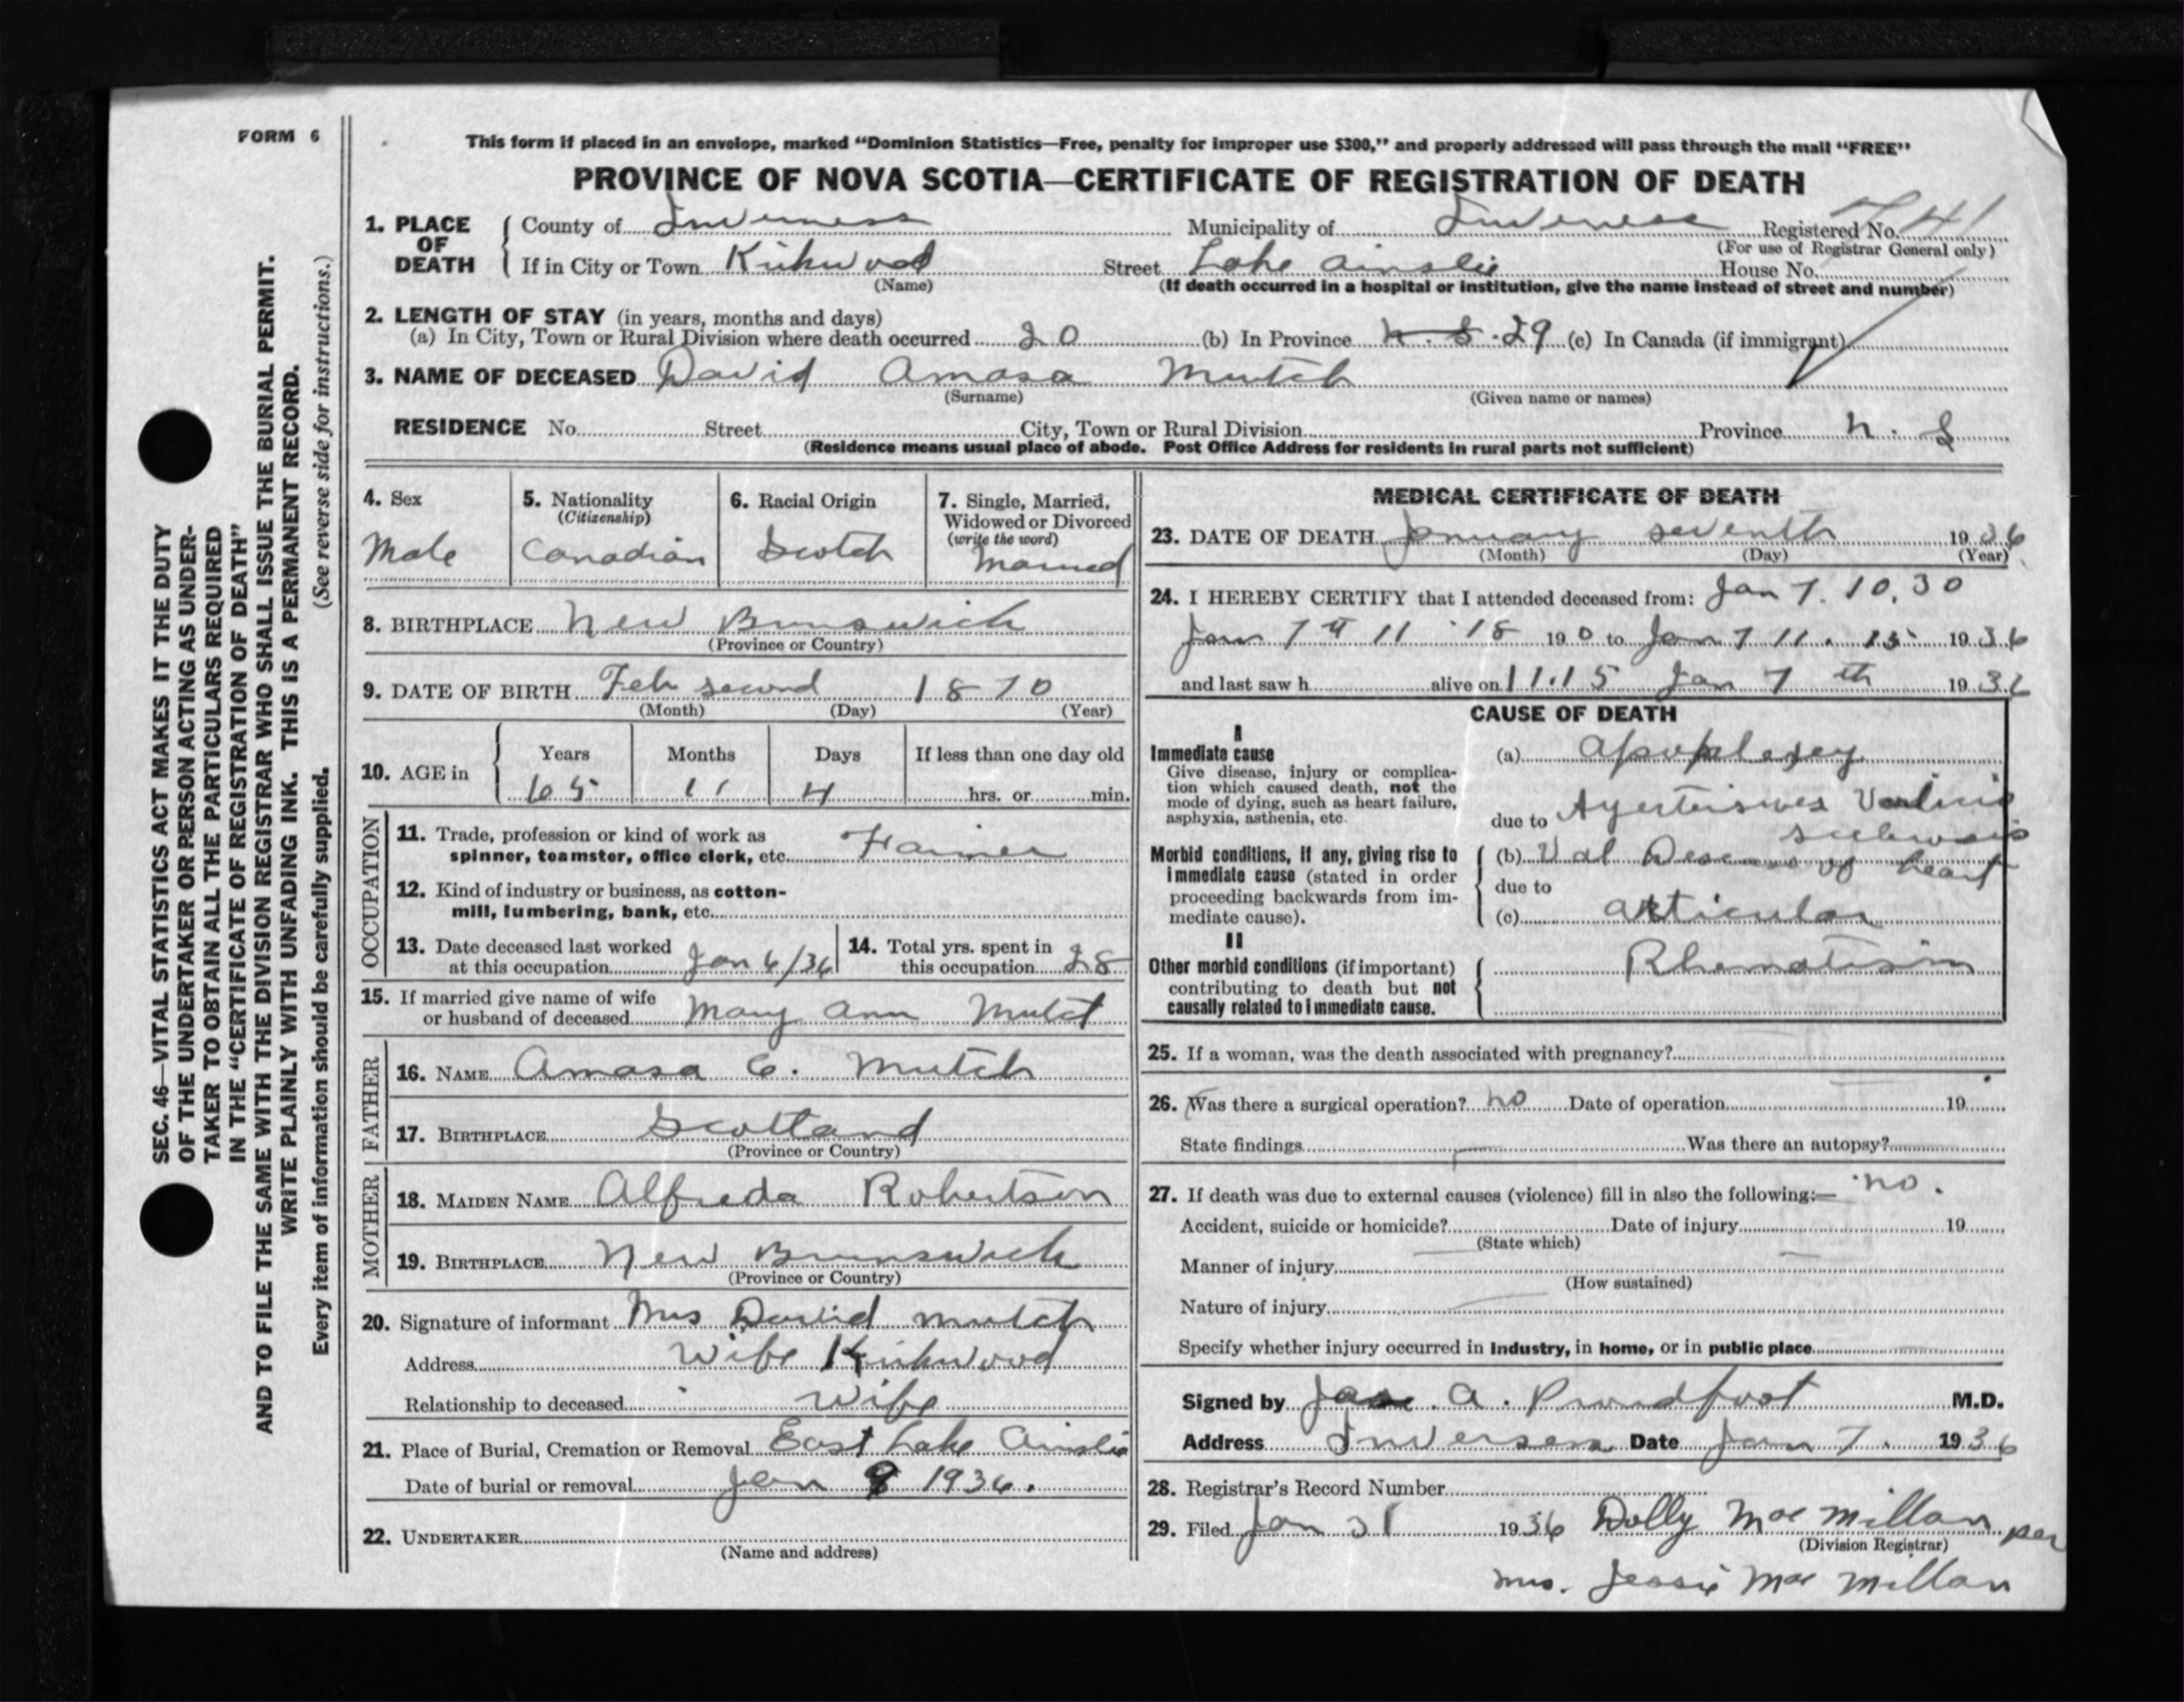 FORM 6
This form if placed in an envelope, marked "Dominion Statistics—Free, penalty for improper use $300," and properly addressed will pass through the mail "FREE"
PROVINCE OF NOVA SCOTIA—CERTIFICATE OF REGISTRATION OF DEATH
1. PLACE OF DEATH County of Inverness Municipality of Inverness Registered No.
(For use of Registrar General only)
If in City or Town Kirkwood Street Lake Ainslie House No.
(Name) (If death occurred in a hospital or institution, give the name instead of street and number)
2. LENGTH OF STAY (in years, months and days)
(a) In City, Town or Rural Division where death occurred 20 (b) In Province N. S. 29 (c) In Canada (if immigrant)
3. NAME OF DECEASED David Amasa Mutch
(Surname) (Given name or names)
RESIDENCE No. Street City, Town or Rural Division Province N. S
(Residence means usual place of abode. Post Office Address for residents in rural parts not sufficient)
4. Sex 5. Nationality 6. Racial Origin 7. Single, Married,
(Citizenship) Widowed or Divorced
(write the word)
Male Canadian Scotch Married
8. BIRTHPLACE New Brunswick
(Province or Country)
9. DATE OF BIRTH Feb second 1870
(Month) (Day) (Year)
10. AGE in Years Months Days If less than one day old
65 11 4 hrs. or min.
OCCUPATION
11. Trade, profession or kind of work as
spinner, teamster, office clerk, etc. Farmer
12. Kind of industry or business, as cotton-
mill, lumbering, bank, etc.
13. Date deceased last worked
at this occupation Jan 6/36
14. Total yrs. spent in
this occupation 28
15. If married give name of wife
or husband of deceased Mary Ann Mutch
FATHER
16. NAME Amasa C. Mutch
17. BIRTHPLACE Scotland
(Province or Country)
MOTHER
18. MAIDEN NAME Alfreda Robertson
19. BIRTHPLACE New Brunswick
(Province or Country)
20. Signature of informant Mrs David Mutch
Address Wife Kirkwood
Relationship to deceased Wife
21. Place of Burial, Cremation or Removal East Lake Ainslie
Date of burial or removal Jan 9 1936.
22. UNDERTAKER
(Name and address)
MEDICAL CERTIFICATE OF DEATH
23. DATE OF DEATH January seventh 1936
(Month) (Day) (Year)
24. I HEREBY CERTIFY that I attended deceased from: Jan 7. 10.30
Jan 7 11 190 to Jan 7 11. 15 1936
and last saw h alive on 11.15 Jan 7 th 1936
CAUSE OF DEATH
I
Immediate cause (a) Apoplexy
Give disease, injury or complica-
tion which caused death, not the
mode of dying, such as heart failure,
asphyxia, asthenia, etc.
due to
Morbid conditions, if any, giving rise to
immediate cause (stated in order
proceeding backwards from im-
mediate cause).
(b) Val Disease of heart
due to
(c) articular
II
Other morbid conditions (if important)
contributing to death but not
causally related to immediate cause.
Rhematism
25. If a woman, was the death associated with pregnancy?
26. Was there a surgical operation? no Date of operation 19
State findings Was there an autopsy?
27. If death was due to external causes (violence) fill in also the following:— no.
Accident, suicide or homicide? Date of injury 19
(State which)
Manner of injury
(How sustained)
Nature of injury
Specify whether injury occurred in industry, in home, or in public place
Signed by Jas. A. Proudfoot M.D.
Address Date Jan 7. 1936
28. Registrar's Record Number
29. Filed Jan 31 1936 Dolly Mac Millan per
(Division Registrar)
Mrs. Jessie Mac Millan
SEC. 46—VITAL STATISTICS ACT MAKES IT THE DUTY
OF THE UNDERTAKER OR PERSON ACTING AS UNDER-
TAKER TO OBTAIN ALL THE PARTICULARS REQUIRED
IN THE "CERTIFICATE OF REGISTRATION OF DEATH"
AND TO FILE THE SAME WITH THE DIVISION REGISTRAR WHO SHALL ISSUE THE BURIAL PERMIT.
WRITE PLAINLY WITH UNFADING INK. THIS IS A PERMANENT RECORD.
Every item of information should be carefully supplied. (See reverse side for instructions.)